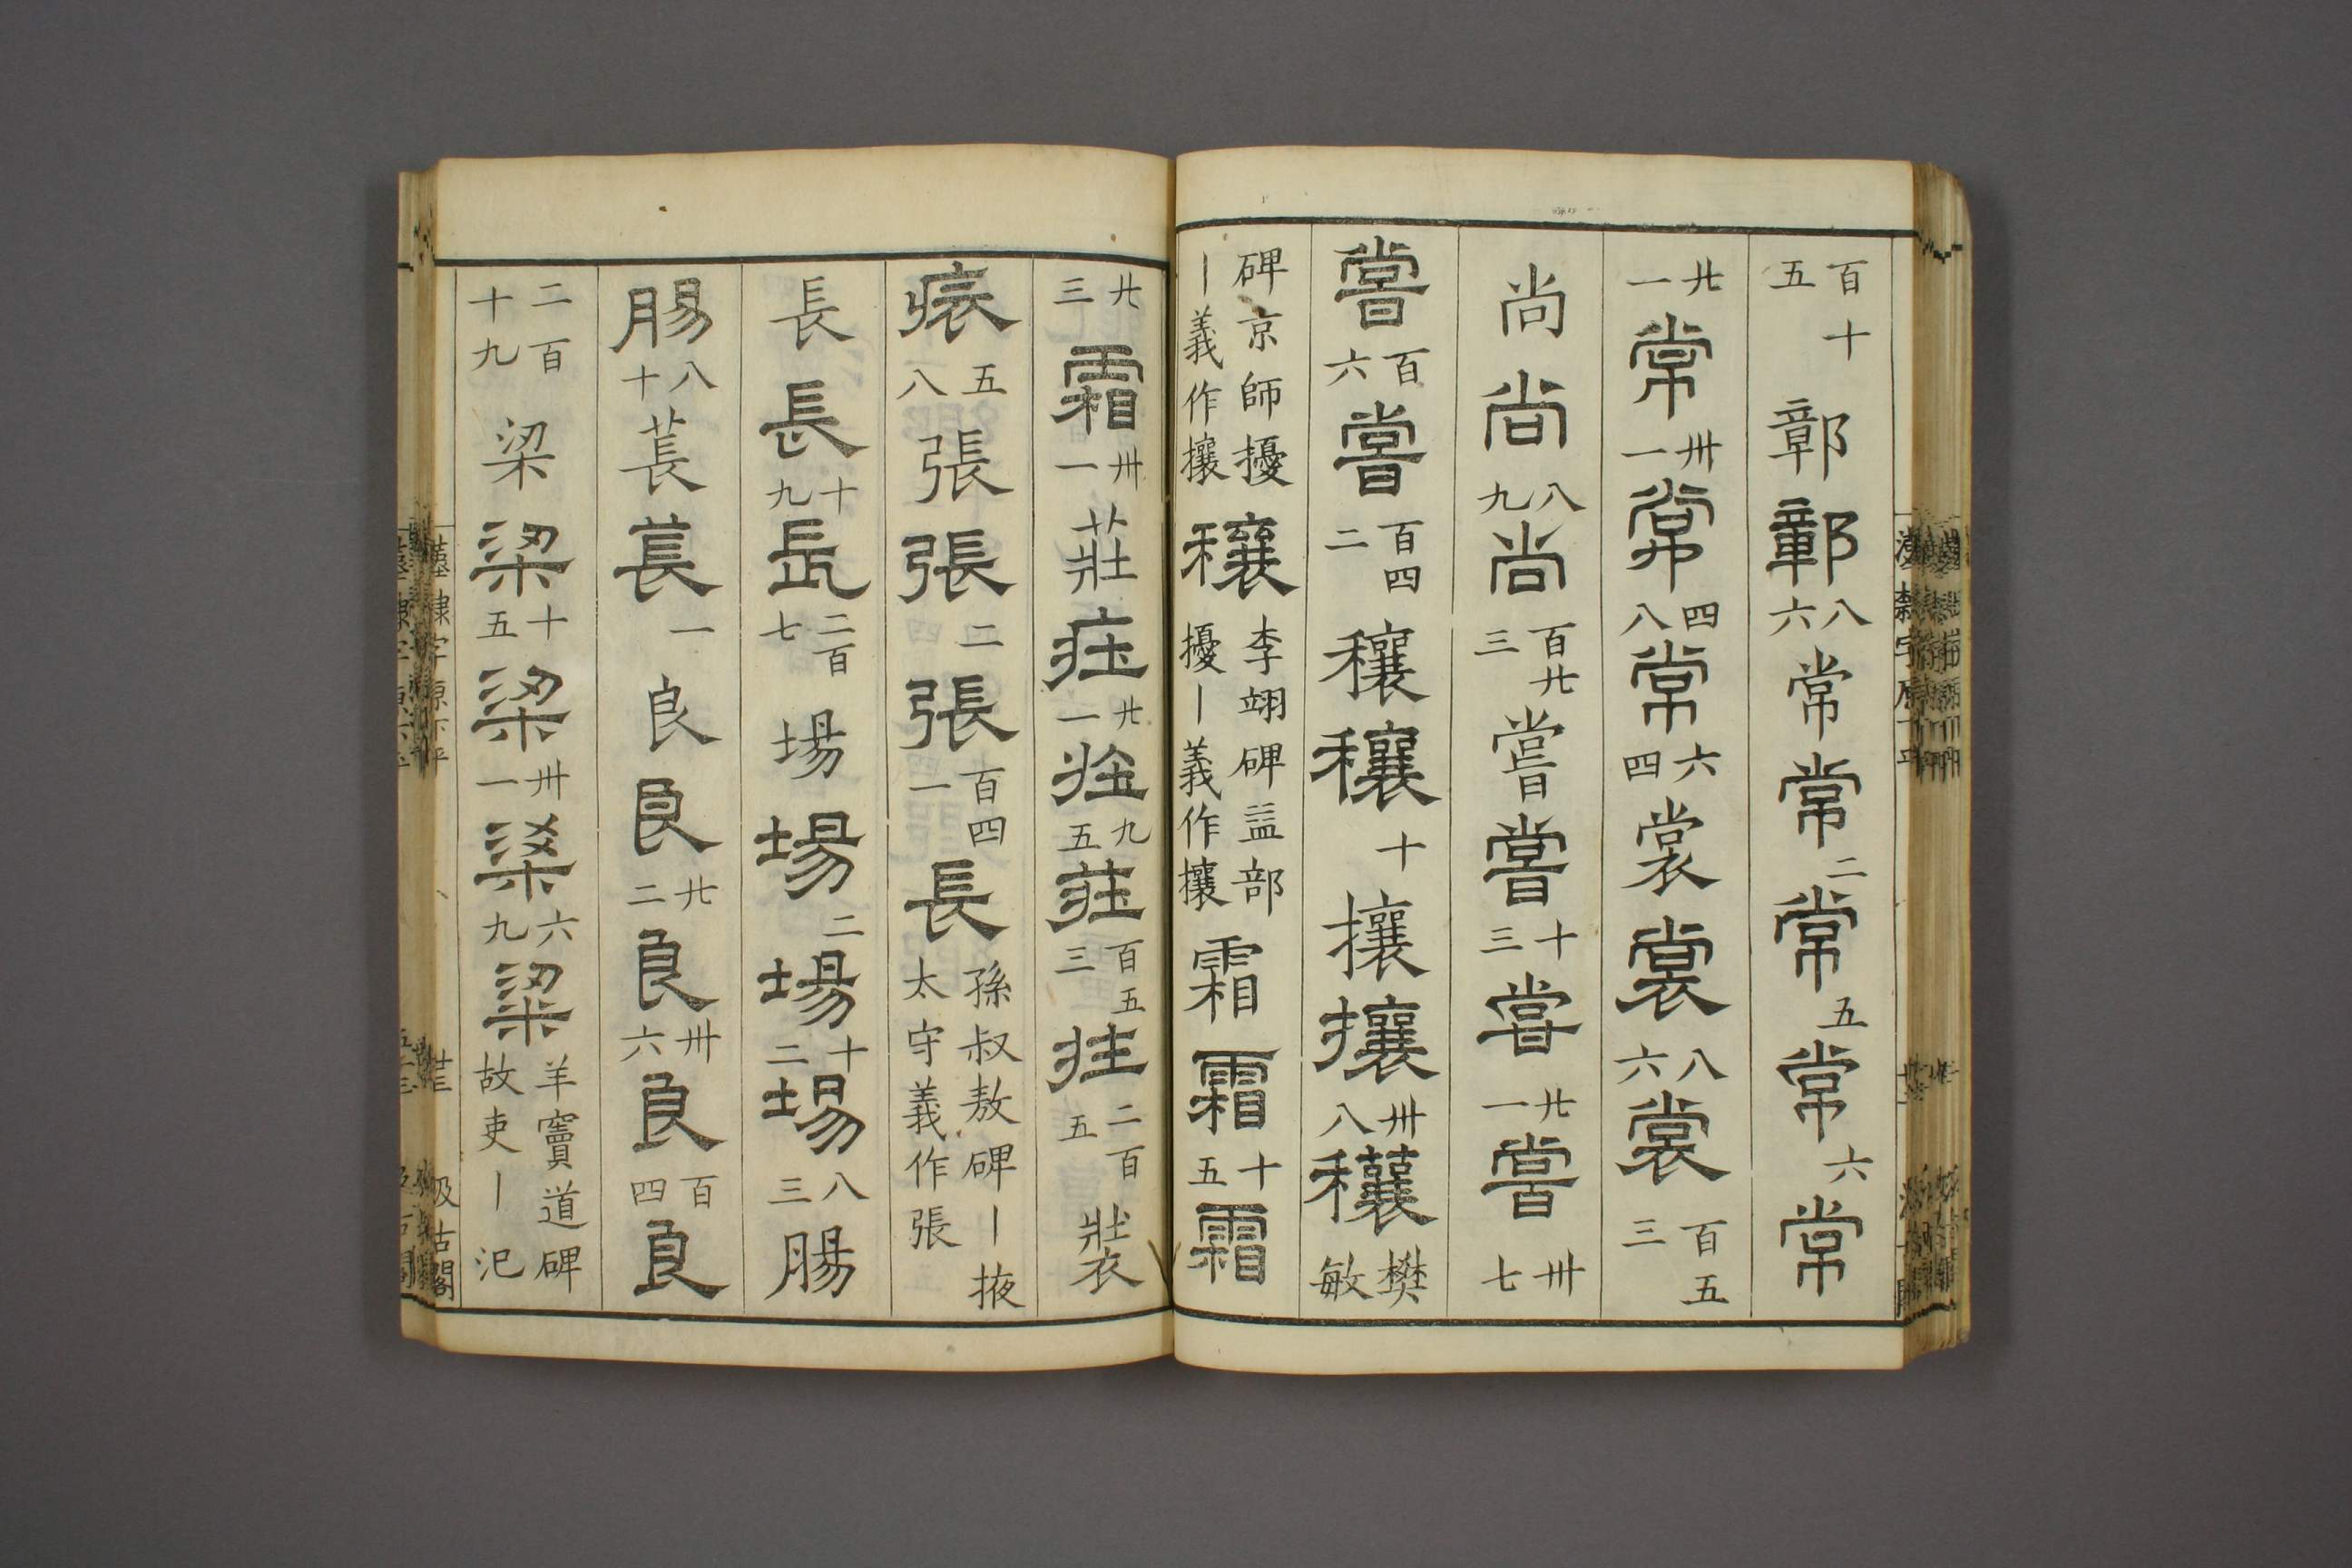 百十五鄣鄣八六常常二常五常六常
廿一常卅一常四八常六四裳裳八六裳百五三
尚尚八九尚百廿三嘗嘗十三嘗廿一嘗卅七
嘗百六嘗百四二穰穰十攘攘卅八穰樊敏
碑京師擾丨義作攘穰李翊碑益部擾丨義作攘霜霜十五霜
廿三霜卅一莊疰廿一㽵九五莊百五三㽵二百五裝
裝五八張張二張百四一長孫叔敖碑丨掖太守義作張
長長十九長二百七場場二場十二場八三腸
腸八十萇萇一良良廿二良卅六良百四良
二百十九梁梁十五梁卅一梁六九梁羊竇道碑故吏丨汜
漢隸字原下平
廿三
汲古閣